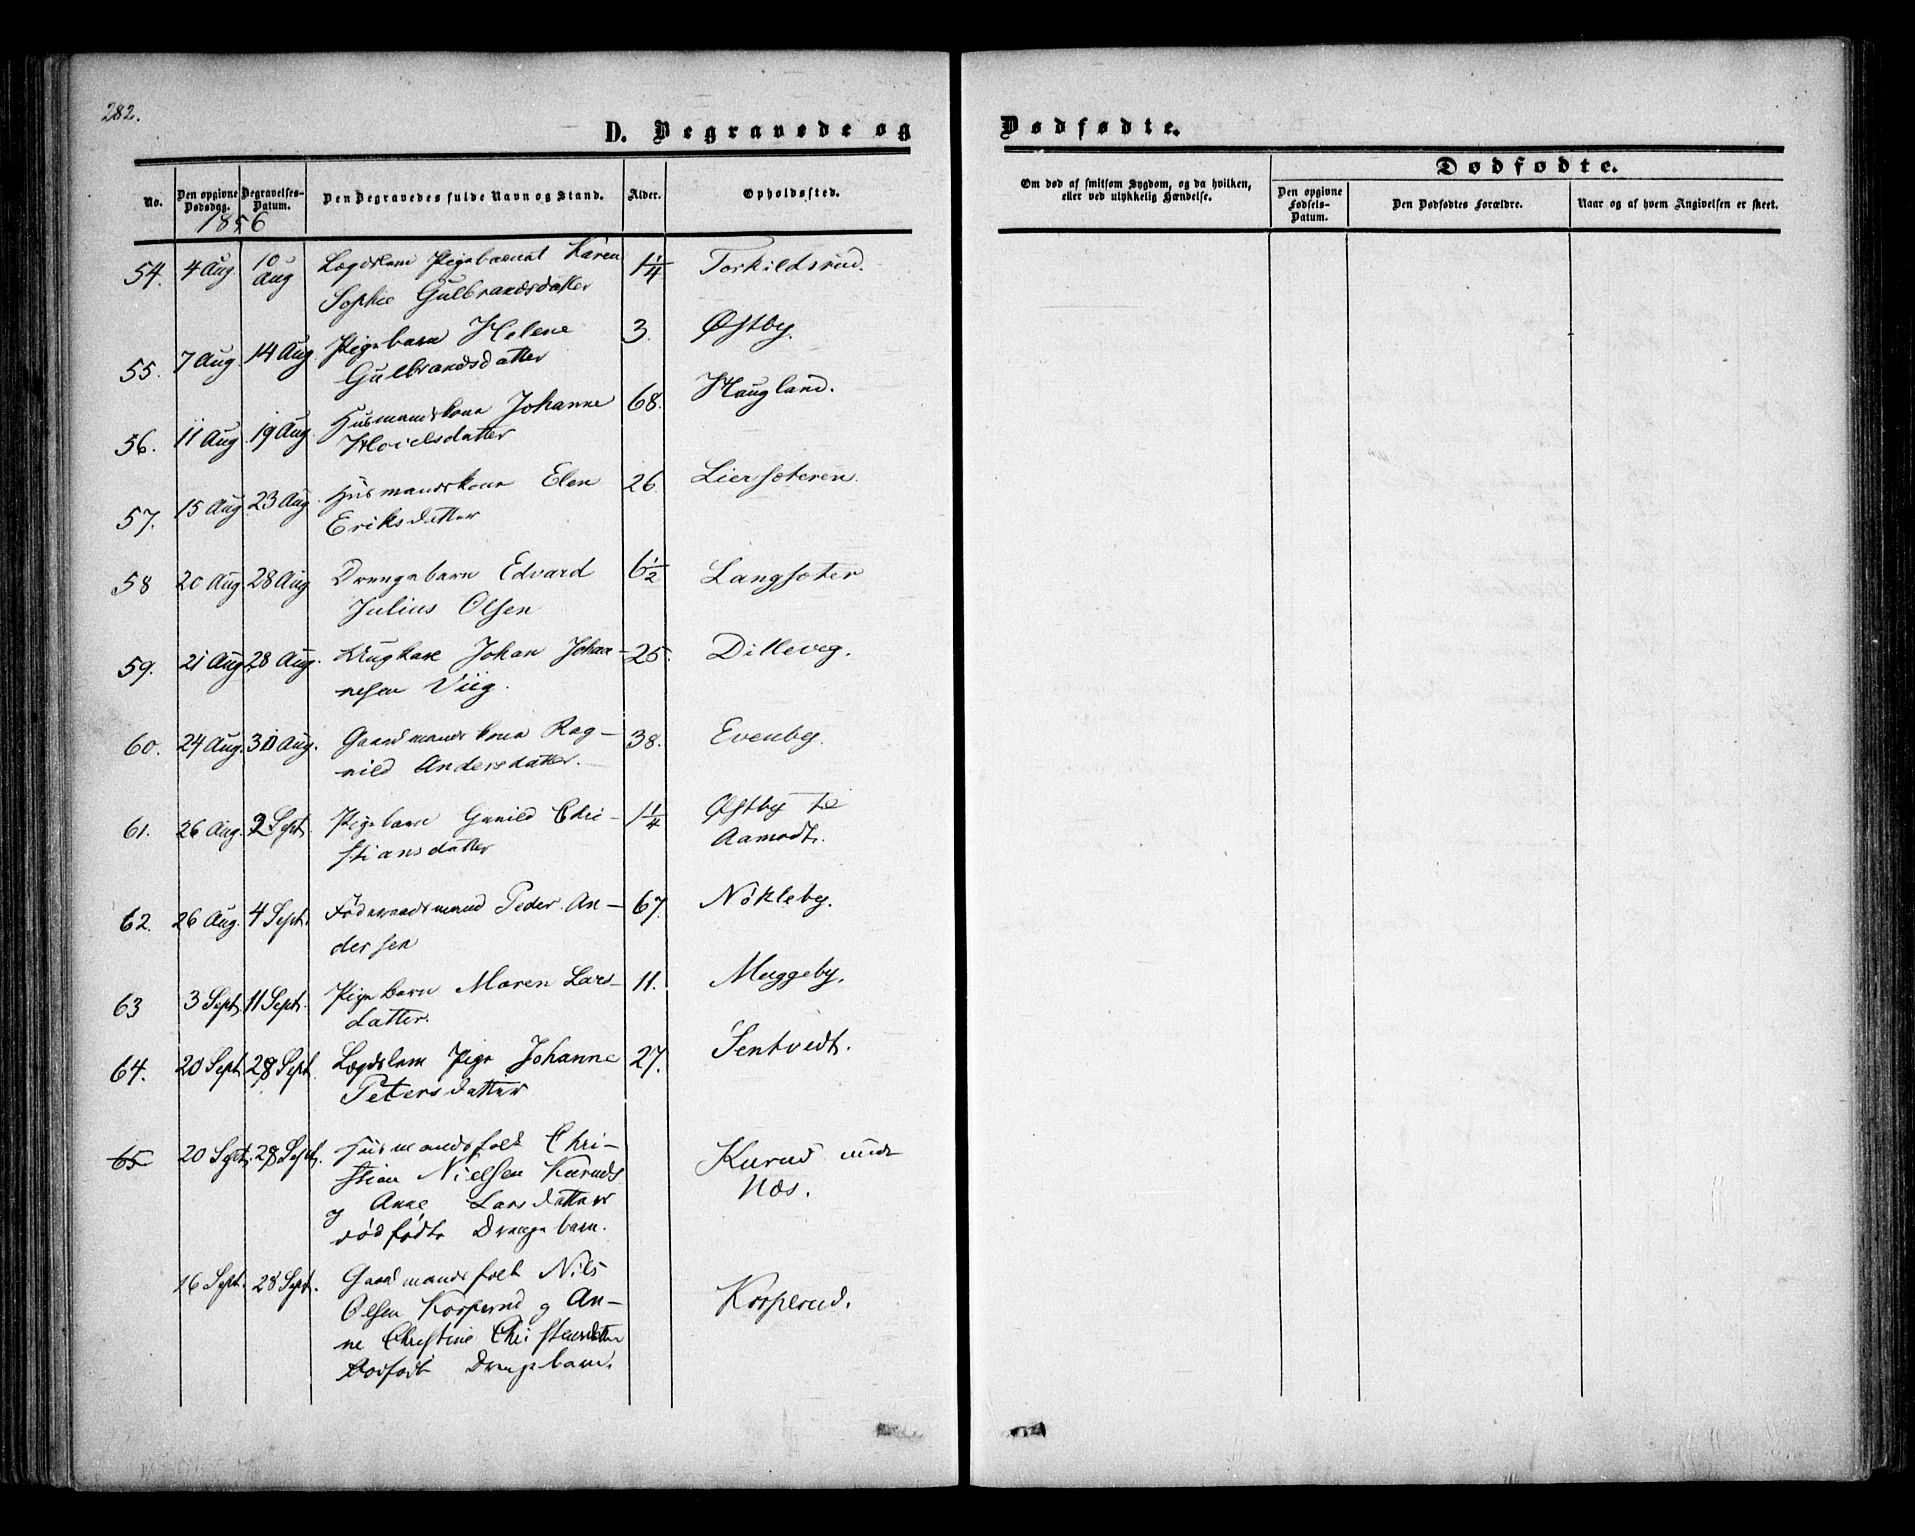 282.
D. Begravede og
Dødfødte.
No.
Den opgivne Dødsdag.
Begravelses-Datum.
Den Begravedes fulde Navn og Stand.
Alder.
Opholdssted.
Om død af smitsom Sygdom, og da hvilken,
eller ved ulykkelig Hændelse.
Dødfødte.
Den opgivne Fødsels-Datum.
Den Dødfødtes Forældre.
Naar og af hvem Angivelsen er skeet.
1856
54. 4 Aug 10 Aug Lægdslem Pigebarnet Karen 1 1/4 Torkildsrud.
Sophie Gulbrandsdatter
55. 7 Aug 14 Aug. Pigebarn Helene 3. Østby.
Gulbrandsdatter
56. 11 Aug 19 Aug. Husmandskone Johanne 68. Haugland.
57. 15 Aug 23 Aug. Husmandskone Elen 26. Liersæteren.
Eriksdatter
58 20 Aug. 28 Aug Drengebarn Edvard 6 1/2 Langsæter
Julius Olsen
59. 21 Aug. 28 Aug. Ungkarl Johan Johan- 25. Dilleveg.
nesen Viig.
60. 24 Aug. 31 Aug. Gaardmandskone Rag- 38. Evenby.
nild Andersdatter.
61. 26 Aug. 2 Sept. Pigebarn Gunild Chri- 1 1/4 Østby
stiansdatter Aamodt.
62. 26 Aug. 4 Sept. Føderaadsmand Peder An- 67. Nökleby.
dersen
63 3 Sept. 11 Sept. Pigebarn Maren Lars- 11. Muggeby.
datter.
64. 20 Sept. 28 Sept. Lægdslem Pige Johanne 27. Sentvedt.
Petersdatter
65 20 Sept. 28 Sept. Husmandsfolk Chri- Kurud under
stian Nielsen Kuruds Næs.
og Anne Larsdatter
dødfødte Drengebarn.
16 Sept. 28 Sept. Gaardmandsfolk Nils Korperud.
Olsen Korperud og An-
ne Christine Christensdatter
Dødfødt Drengebarn.